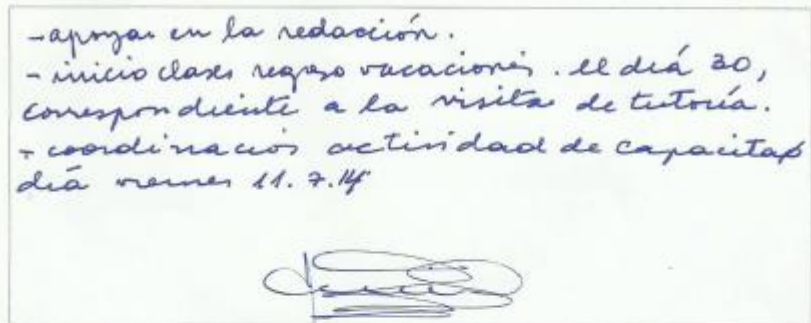 - apoyar en la redacción.
- inicio clases regreso vacaciones. el diá 30,
correspondiente a la visita de tutoría.
- coordinación actividad de capacitac
diá viernes 11.7.14